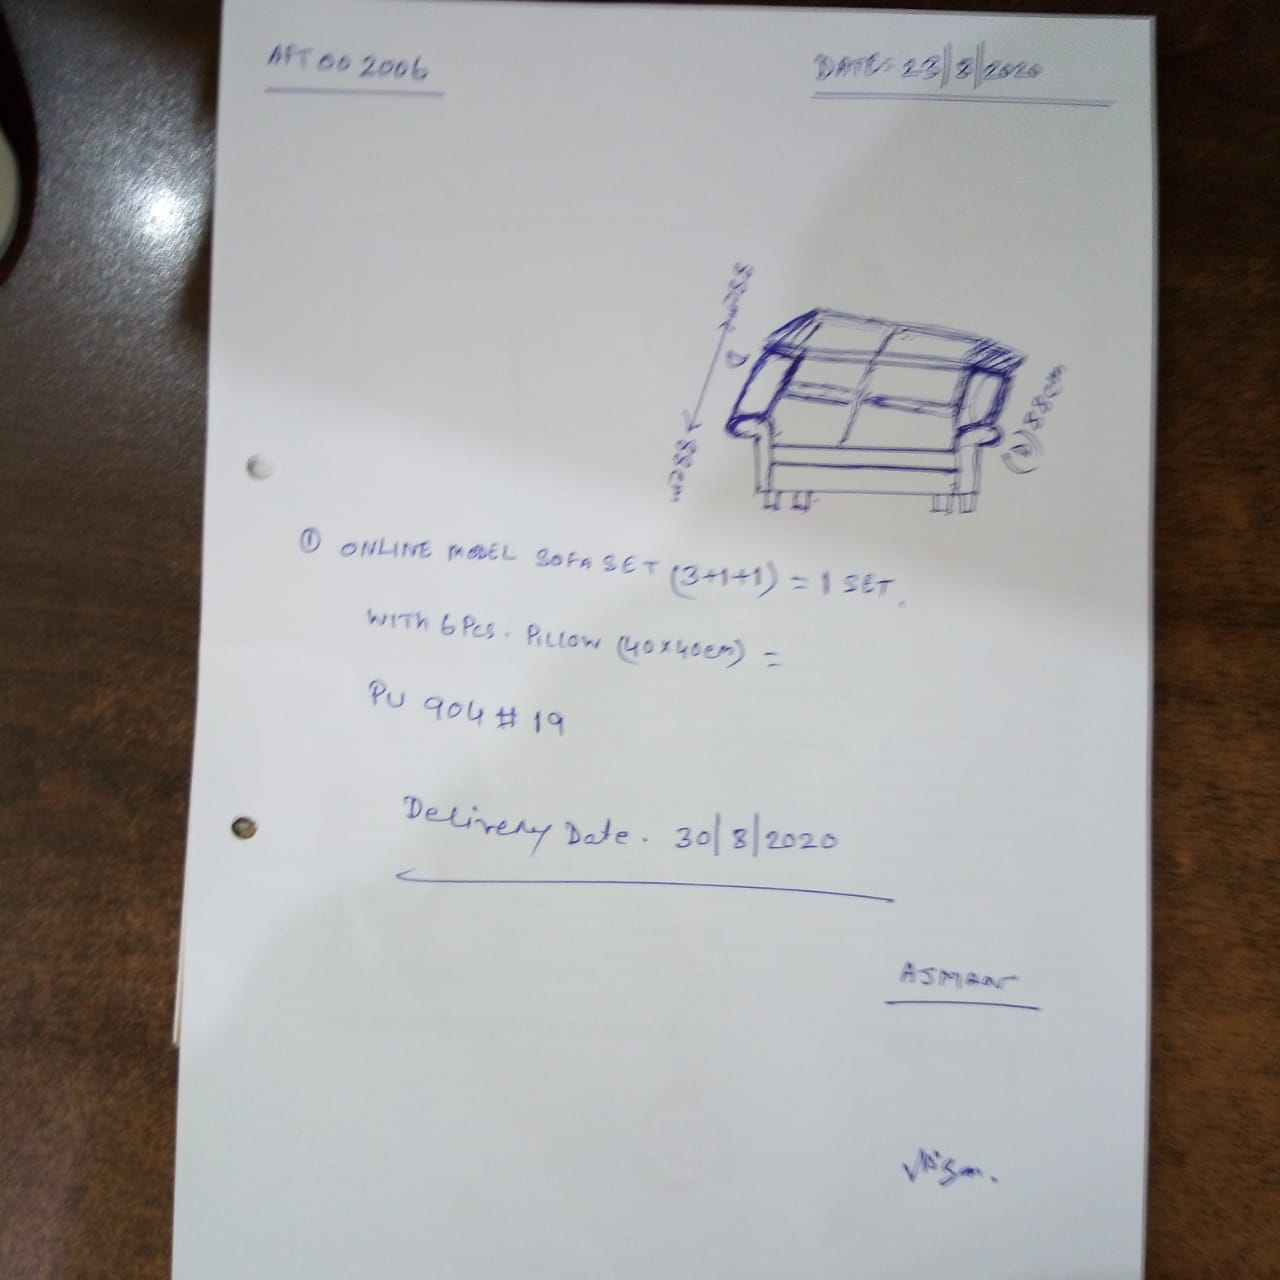 AFT 00 2006
DATE: 23/8/2020
88cm
D
88cm
(H) 88cm
① ONLINE MODEL SOFA SET (3+1+1) = 1 SET.
WITH 6 Pcs. PILLOW (40x40cm) =
PU 904 # 19
Delivery Date. 30/8/2020
AJMAN